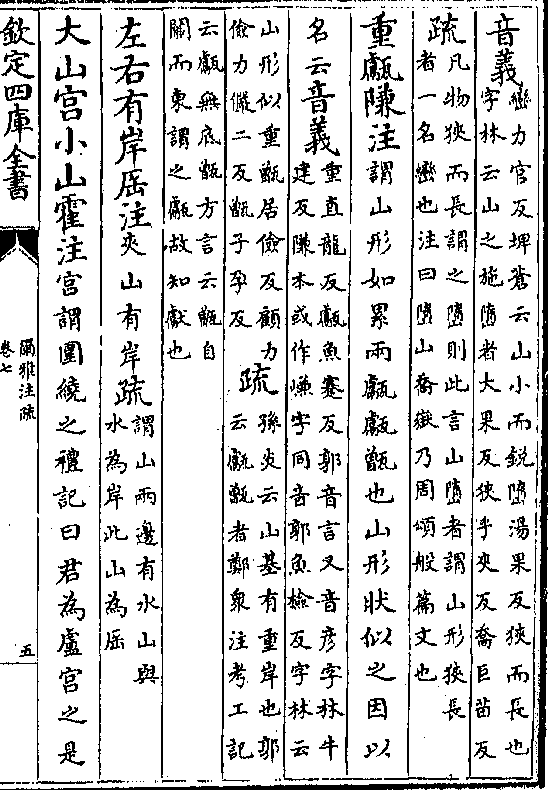 音義巒力官反埤蒼云山小而銳墮湯果反狹而長也
字林云山之施墮者大果反狹乎夾反喬巨苗反
疏凡物狹而長謂之墮則此言山墮者謂山形狹長
者一名巒也注曰墮山喬嶽乃周頌般篇文也
重甗隒注謂山形如累兩甗甗甑也山形狀似之因以
名云音義重直龍反甗魚蹇反郭音言又音彥字林牛
建反隒本或作嵰字同音郭魚檢反字林云
山形似重甑居儉反顧力
儉力儼二反甑子孕反疏孫炎云山基有重岸也郭
云甗甑者鄭衆注考工記
云甗無底甑方言云甑自
關而東謂之甗故知獻也
左右有岸厒注夾山有岸疏謂山兩邊有水山與
水為岸此山為厒
大山宮小山霍注宮謂圍繞之禮記曰君為廬宮之是
欽定四庫全書
爾雅注疏
卷七
五